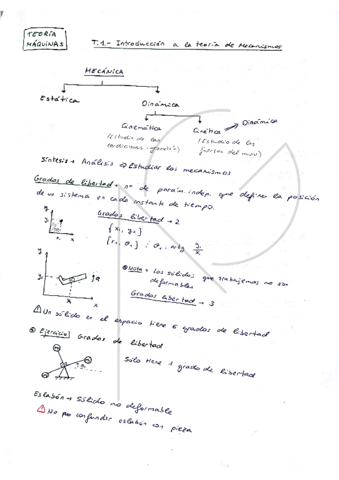 TEORÍA
MÁQUINAS
T.1.- Introducción a la teoría de Mecanismos
MECÁNICA
Estática
Dinámica
Cinemática
(Estudia las
Cinética
(Estudio de las
fuerzas del mov)
Dinámica
Síntesis + Análisis ⇒ Estudiar los mecanismos
Grados de libertad → nº de parám. indep. que definen la posición
de un sistema en cada instante de tiempo.
Grados libertad → 2
Nota → los sólidos que trabajemos no son
deformables
Grados libertad → 3
Un sólido en el espacio tiene 6 grados de libertad
Ejercicio Grados de libertad
Sólo tiene 1 grado de libertad
Eslabón → Sólido no deformable
No confundir eslabón con pieza